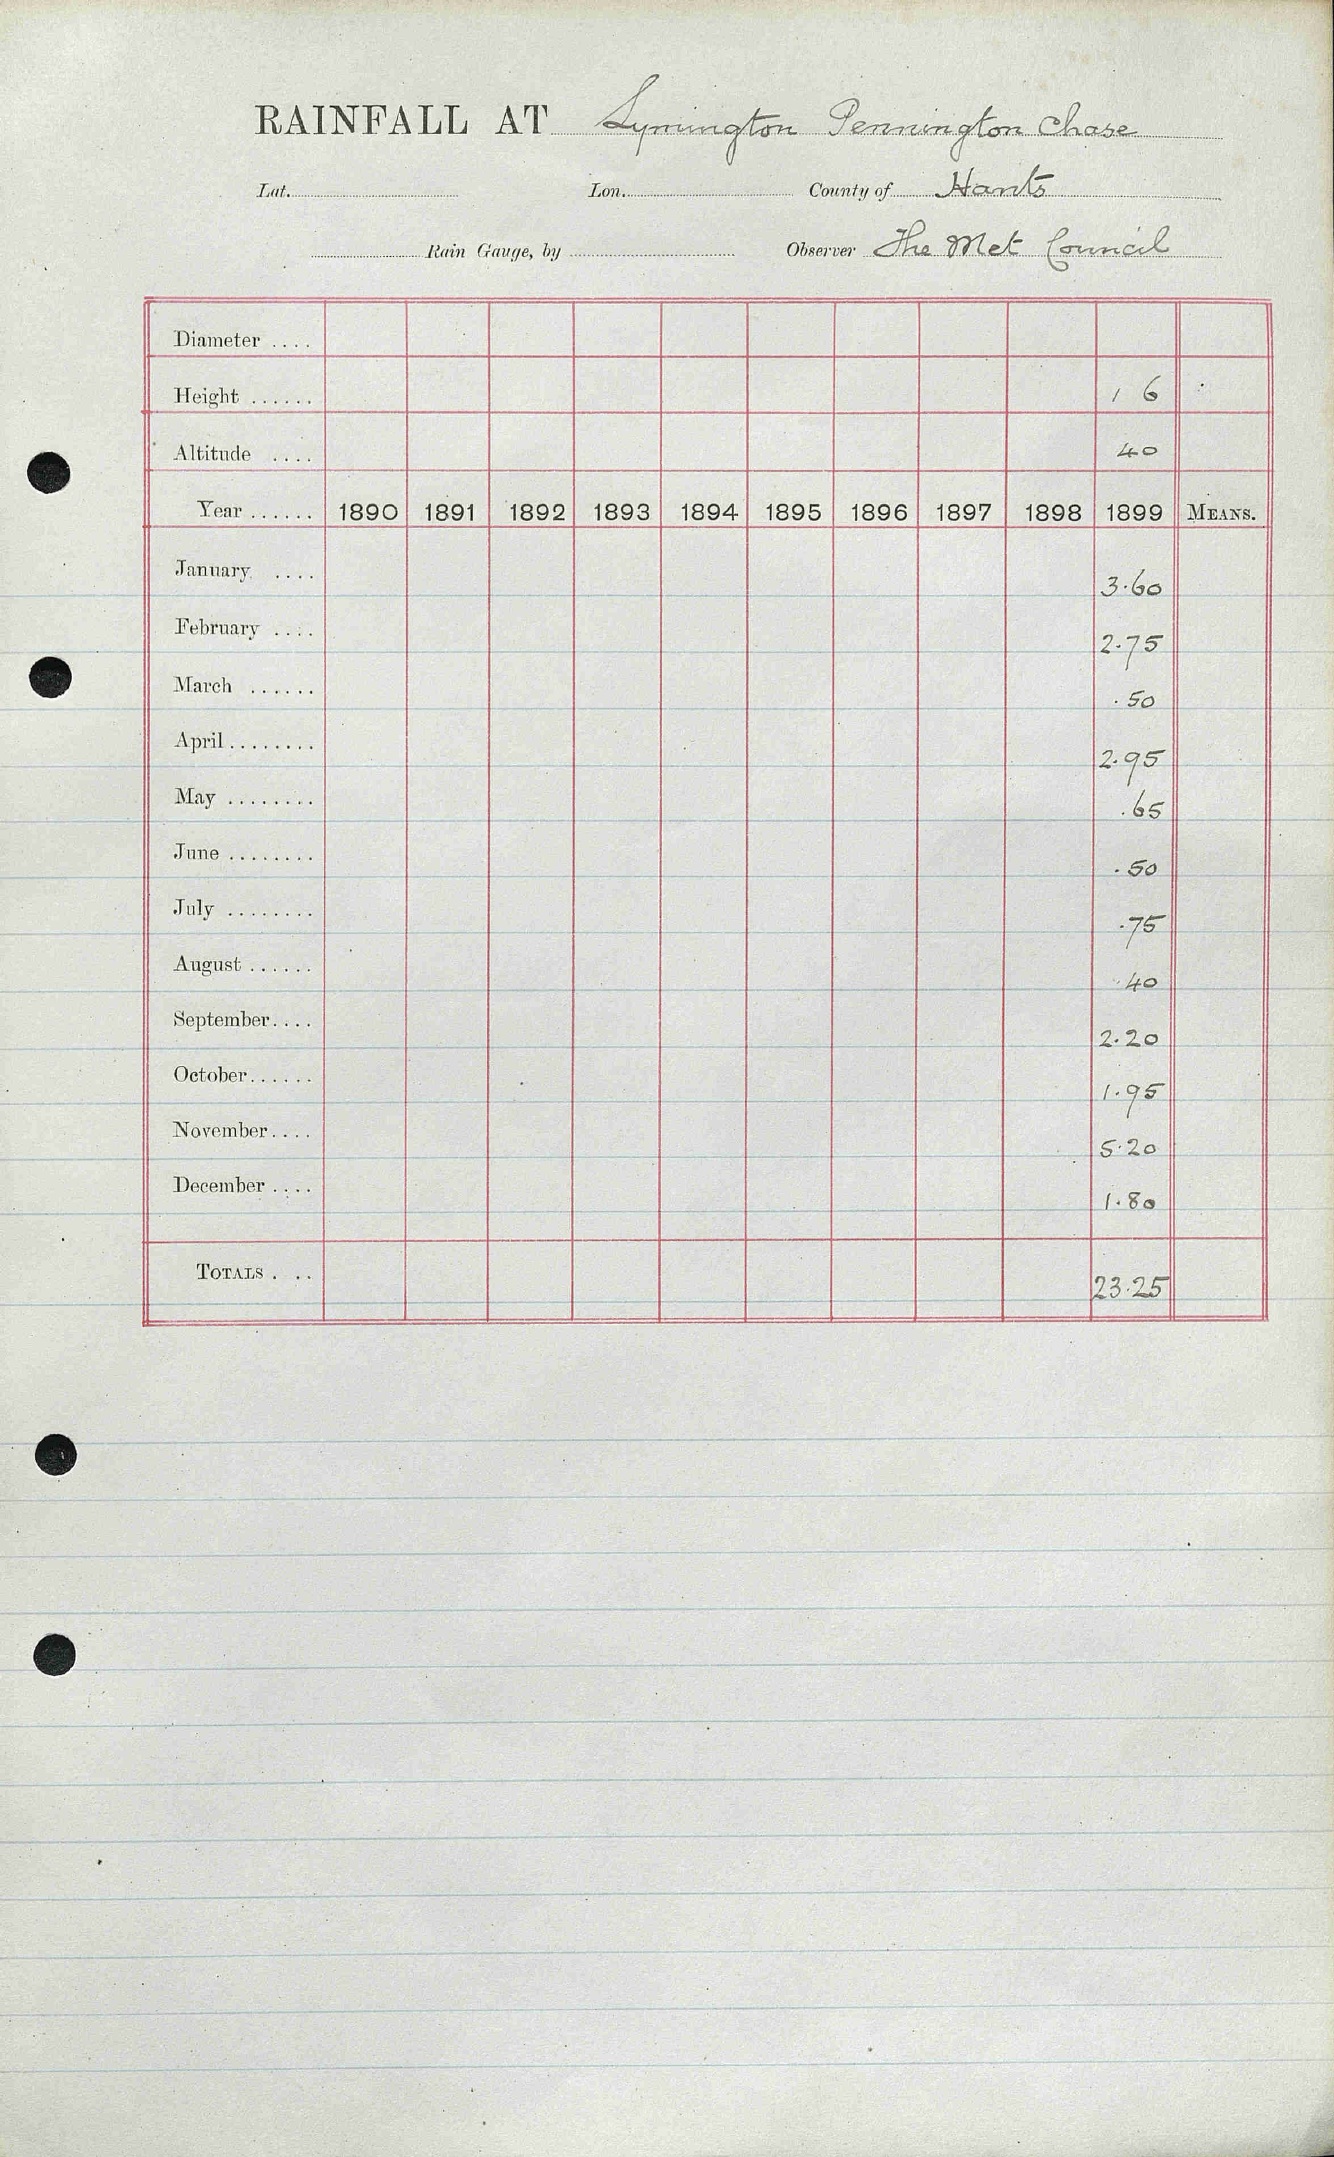 RAINFALL AT Lymington Pennington Chase
Lat. Lon. County of Hants
Rain Gauge, by Observer The Met Council
Diameter ....
Height ...... 1 6
Altitude .... 40
Year ...... 1890 1891 1892 1893 1894 1895 1896 1897 1898 1899 MEANS.
January .... 3.60
February .... 2.75
March ...... .50
April ........ 2.95
May ........ .65
June ........ .50
July ........ .75
August ...... .40
September.... 2.20
October...... 1.95
November.... 5.20
December .... 1.80
TOTALS . .. 23.25